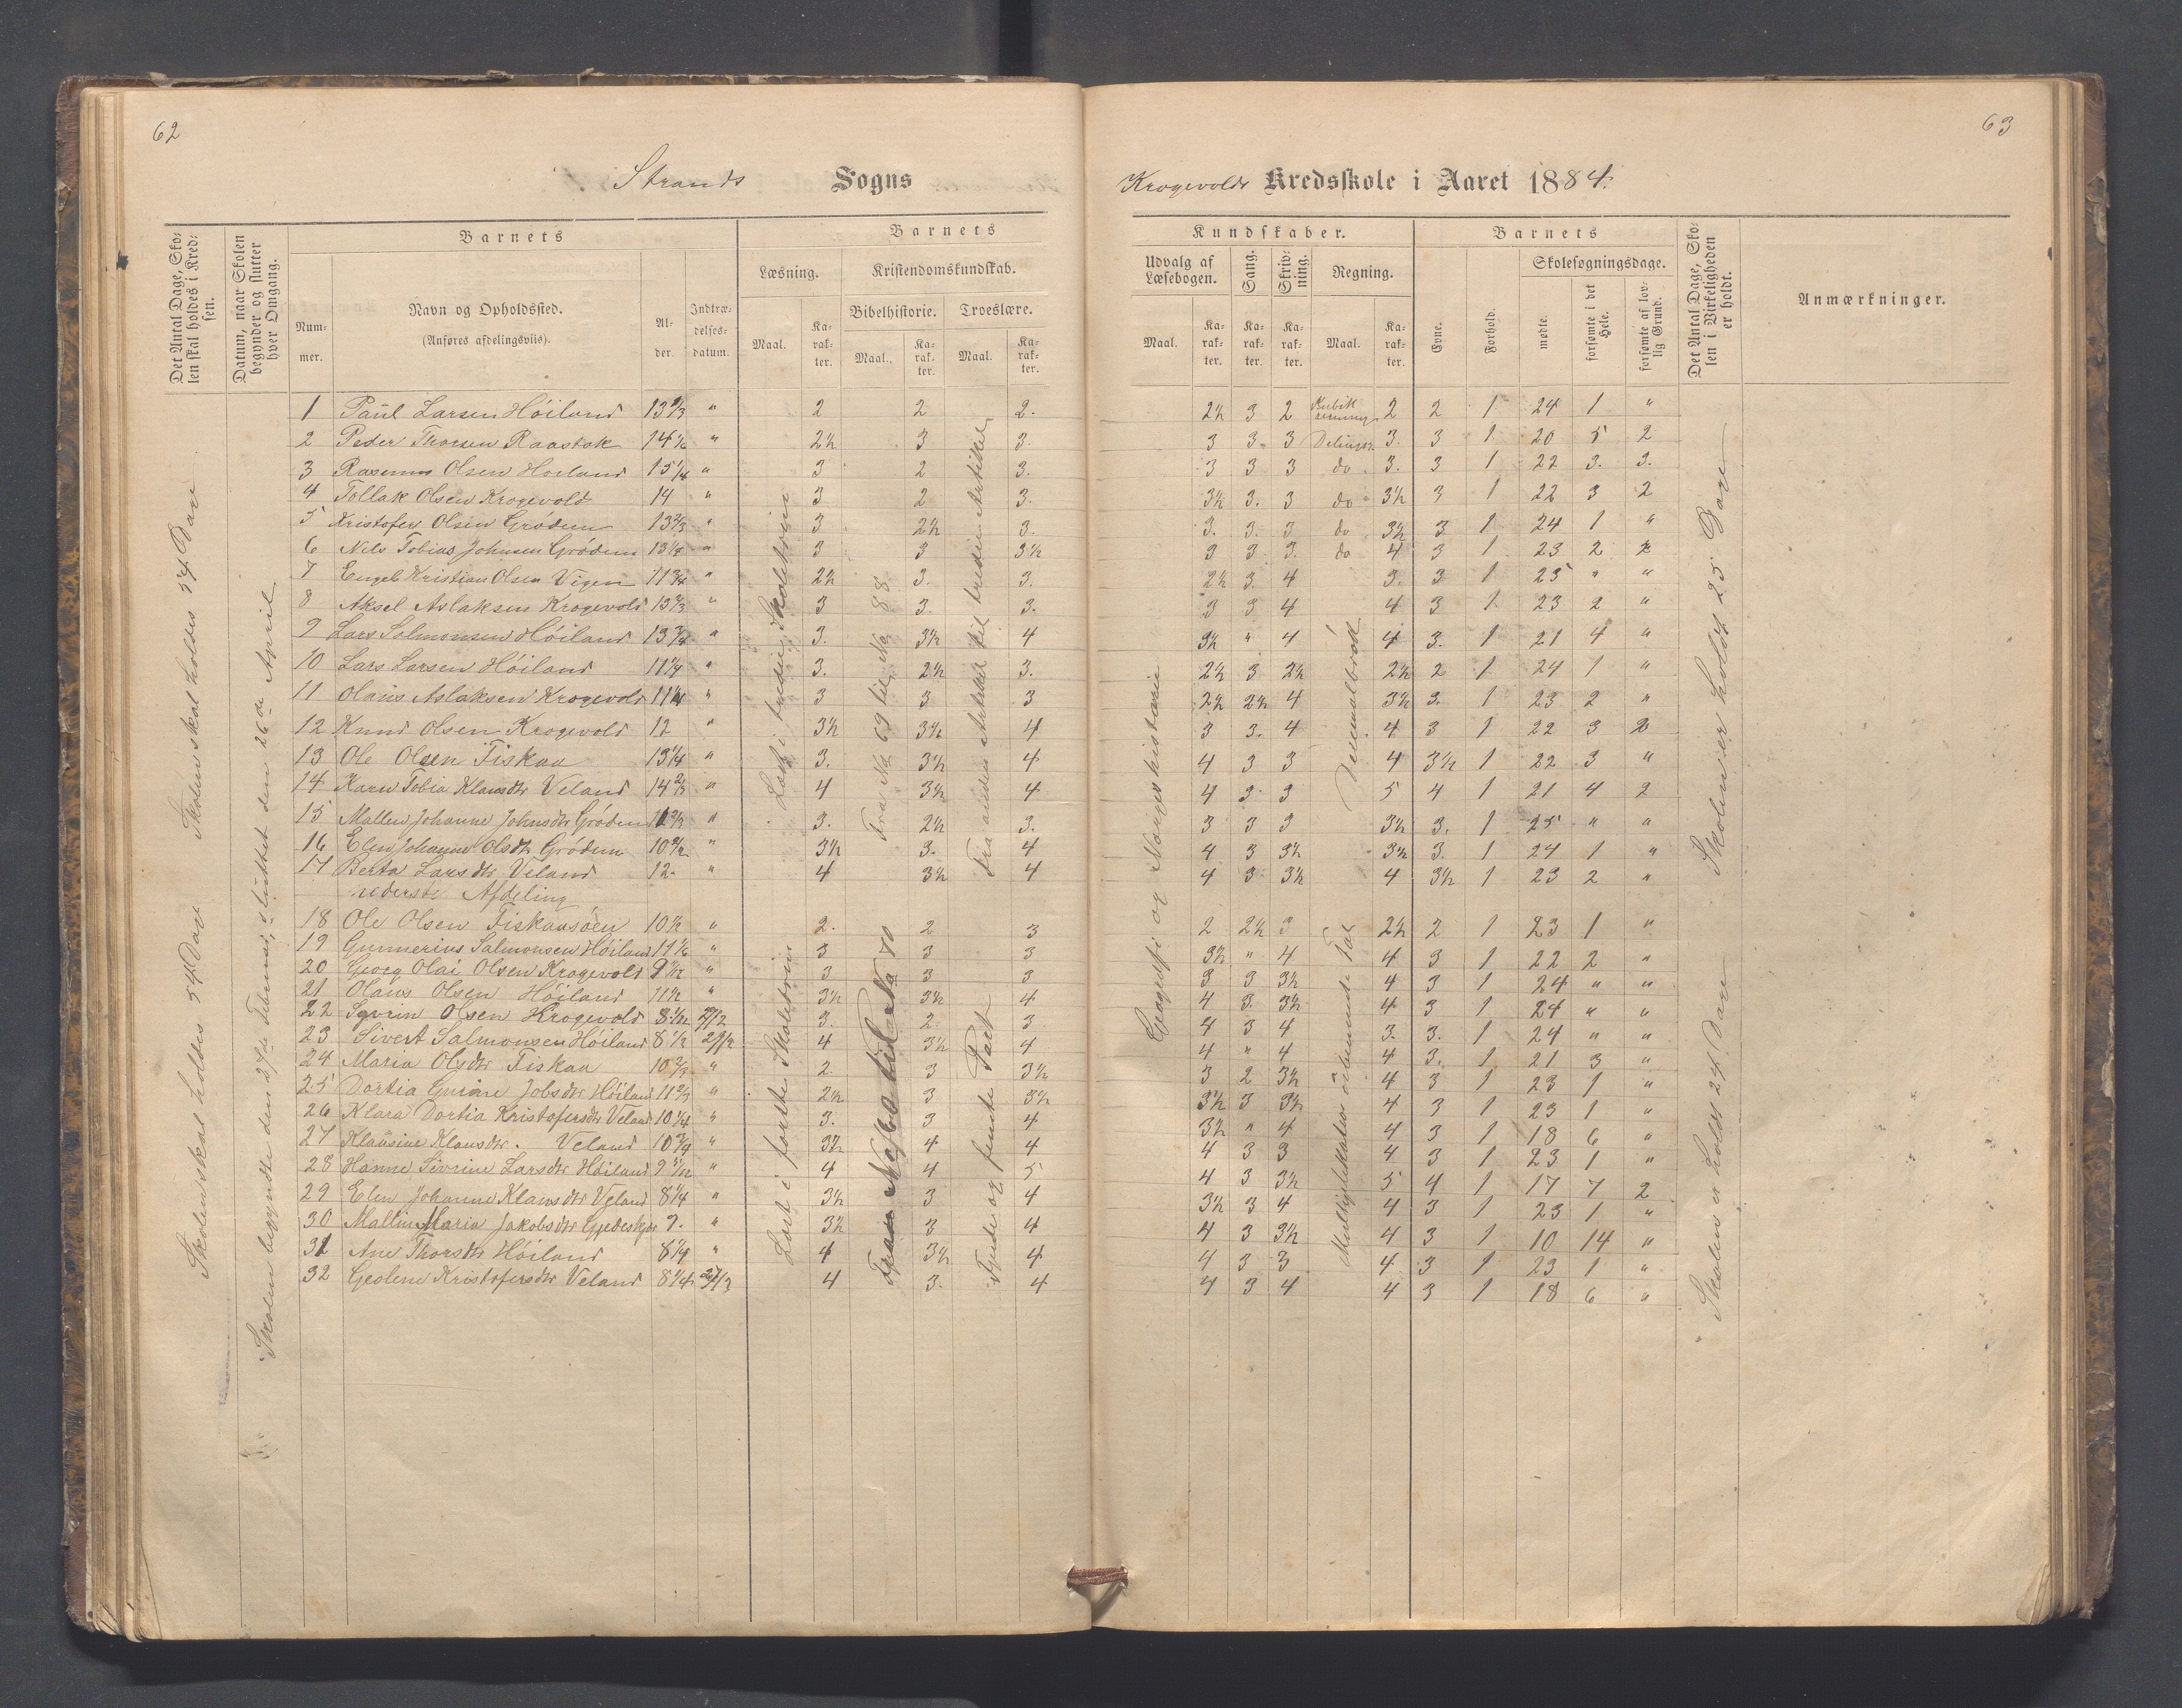 62
Strands Sogns
Det Antal Dage, Skolen skal holdes i Kredsen.
Datum, naar Skolen begynder og slutter hver Omgang.
Barnets
Barnets
Nummer.
Navn og Opholdssted.
(Anføres afdelingsviis).
Alder.
Indtrædelses-datum.
Læsning.
Kristendomskundskab.
Maal.
Karakter.
Bibelhistorie.
Troeslære.
Maal.
Karakter.
Maal.
Karakter.
Skolen skal holdes 54 Dage
Skolen skal holdes 54 Dage
Skolen begyndte den 2den Februar, sluttet den 26de April
1 Paul Larsen Höiland 13 2/3 " 2 2 2.
2 Peder Thorsen Raastok 14 1/2 " 2½ 3 3.
3 Rasmus Olsen Höiland 15 1/4 " 3 2 3.
4 Tollak Olsen Krogevold 14 " 3 2 3.
5 Kristofer Olsen Grödem 13 2/3 " 3 2½ 3.
6 Nils Tobias Johnsen Grödem 13 1/4 " 3 3 3½
7 Engel Kristian Olsen Vigen 11 3/4 " 2½ 3. 3.
8 Aksel Aslaksen Krogevold 13 2/3 " 3 3. 3.
9 Lars Salmonsen Höiland 13 3/4 " 3. 3½ 4
10 Lars Larsen Höiland 11 1/4 " 3. 2½ 3.
11 Olaus Aslaksen Krogevold 11 1/4 " 3 3 3
12 Knud Olsen Krogevold 12 " 3½ 3½ 4
13 Ole Olsen Fiskaa 13 1/4 " 3. 3½ 4
14 Karen Tobia Klausdtr Veland 14 2/3 " 4 3½ 4
15 Mallen Johanne Johnsdtr Grödem 12 2/3 " 3. 2½ 3.
16 Elen Johanne Olsdtr Grödem 10 1/2 " 3½ 3. 4
17 Berta Larsdtr Veland 12 " 4 3½ 4
nederste Afdeling
18 Ole Olsen Fiskaasöen 10 1/2 " 2. 2 3
19 Gunnerius Salmonsen Höiland 11 1/2 " 3 3 3
20 Georg Olai Olsen Krogevold 9 1/2 " 3 3 3
21 Olaus Olsen Höiland 11 1/2 " 3½ 3½ 4
22 Severin Olsen Krogevold 8 1/12 2/2 3. 2. 3
23 Sivert Salmonsen Höiland 8 1/2 2/2 4 3½ 4
24 Maria Olsdtr Fiskaa 10 2/3 " 2. 3 3½
25 Dortia Gurine Jobsdtr Höiland 11 2/3 " 2½ 3 3½
26 Klara Dortia Kristofersdtr Veland 10 1/4 " 3. 3 4
27 Klausine Klausdtr. Veland 10 3/4 " 3½ 4 4
28 Hanne Sivrine Larsdtr Höiland 9 5/12 " 4 4 5
29 Elen Johanne Klausdtr Veland 8 1/4 " 3½ 3 4
30 Mallin Maria Jakobsdtr 9. " 3½ 3 4
31 Ane Thorsdtr Höiland 8 1/4 " 4 3½ 4
32 Geoline Kristofersdtr Veland 8 1/4 4 3. 4
Læst i tredie Skoletrin
Fra No 69 til No 88
Fra anden Artikel til tredie Artikel
Læst i förste Skoletrin
Fra No 60 til No 70
Fjerde og femte Part
63
Krogevolds Kredsskole i Aaret 1884.
Kundskaber.
Barnets
Udvalg af Læsebogen.
Sang.
Skrivning.
Regning.
Maal.
Karakter.
Karakter.
Karakter.
Maal.
Karakter.
Evne.
Forhold.
Skolesøgningsdage.
mødte.
forsømte i det Hele.
forsømte af lovlig Grund.
Det Antal Dage, Skolen i Virkeligheden er holdt.
Anmærkninger.
2½ 3 2 Kubikregning 2 2 1 24 1 "
3 3 3 3. 3 1 20 5 2
3 3 3 do 3. 3 1 22 3. 3.
3½ 3. 3 do 3½ 3 1 22 3 2
3. 3. 3 do 3½ 3 1 24 1 "
3 3 3. do 4 3 1 23 2 2
2½ 3 4 3. 3 1 25 " "
3 3 4 4 3 1 23 2 "
3½ " 4 4 3. 1 21 4 "
2½ 3 2½ 2½ 2 1 24 1 "
2½ 2½ 4 3½ 3. 1 23 2 "
3 3. 4 4 3 1 22 3 2
4 3 3 4 3½ 1 22 3 "
4 3 3 5 4 1 21 4 2
3 3 3 3½ 3. 1 25 " "
4 3 3½ 3½ 3. 1 24 1 "
4 3 3½ 4 3½ 1 23 2 "
2 2½ 3 2½ 2 1 23 1 "
3½ " 4 4 3 1 22 2 "
3 3 3½ 4 3 1 24 " "
4 3. 3½ 4 3 1 24 " "
4 3 4 3. 3. 1 24 " "
4 " 4 4 3. 1 21 3 "
3 2 3½ 4 3 1 23 1 "
3½ 3 3½ 4 3 1 23 1 "
3½ " 4 4 3 1 18 6 "
4 3 3 4 3 1 23 1 "
4 3 3½ 5 4 1 17 7 2
3½ 3 4 4 3 1 23 1 "
4 3 3½ 4 3 1 10 14 "
4 3 3 4 3 1 23 1 "
4 3 4 4 3 1 18 6 "
Geografi og Norgeshistorie
Decimalbrök
Multiplikation ubenævnte Tal
Skolen er holdt 25 Dage
Skolen er holdt 24 Dage